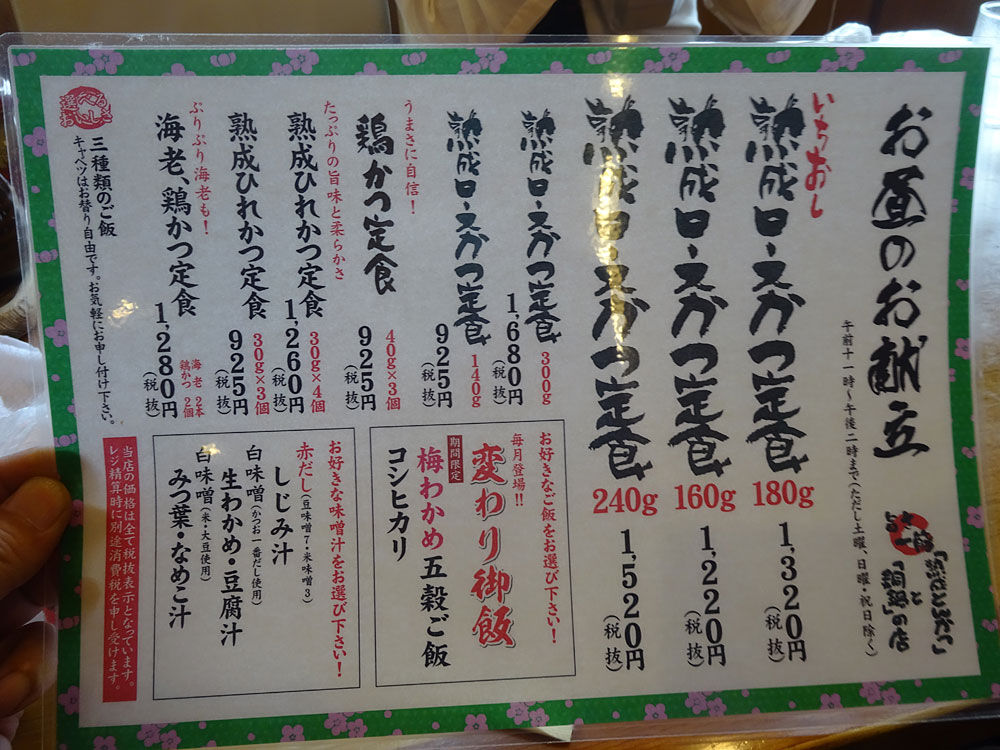 お昼のお献立
午前十一時~午後二時まで(ただし土曜、日曜・祝日除く)
「熟成とんかつ」
と
の店
いちおし
熟成ロースかつ定食
180g
1,320円
(税抜)
熟成ロースかつ定食
160g
1,220円
(税抜)
熟成ロースかつ定食
240g
1,520円
(税抜)
熟成ロースかつ定食
300g
1,680円
(税抜)
熟成ロースかつ定食
140g
925円
(税抜)
うまさに自信!
鶏かつ定食
40g×3個
925円
(税抜)
たっぷりの旨味と柔らかさ
熟成ひれかつ定食
30g×4個
1,260円
(税抜)
熟成ひれかつ定食
30g×3個
925円
(税抜)
ぷりぷり海老も!
海老、鶏かつ定食
海老 2本
鶏かつ 2個
1,280円
(税抜)
三種類のご飯
キャベツはお替り自由です。お気軽にお申し付け下さい。
お好きなご飯をお選び下さい!
毎月登場!!
変わり御飯
期間限定
梅わかめ五穀ご飯
コシヒカリ
お好きな味噌汁をお選び下さい!
赤だし(豆味噌7・米味噌3)
しじみ汁
白味噌(かつお一番だし使用)
生わかめ・豆腐汁
白味噌(米・大豆使用)
みつ葉・なめこ汁
当店の価格は全て税抜表示となっています。
レジ精算時に別途消費税を申し受けます。